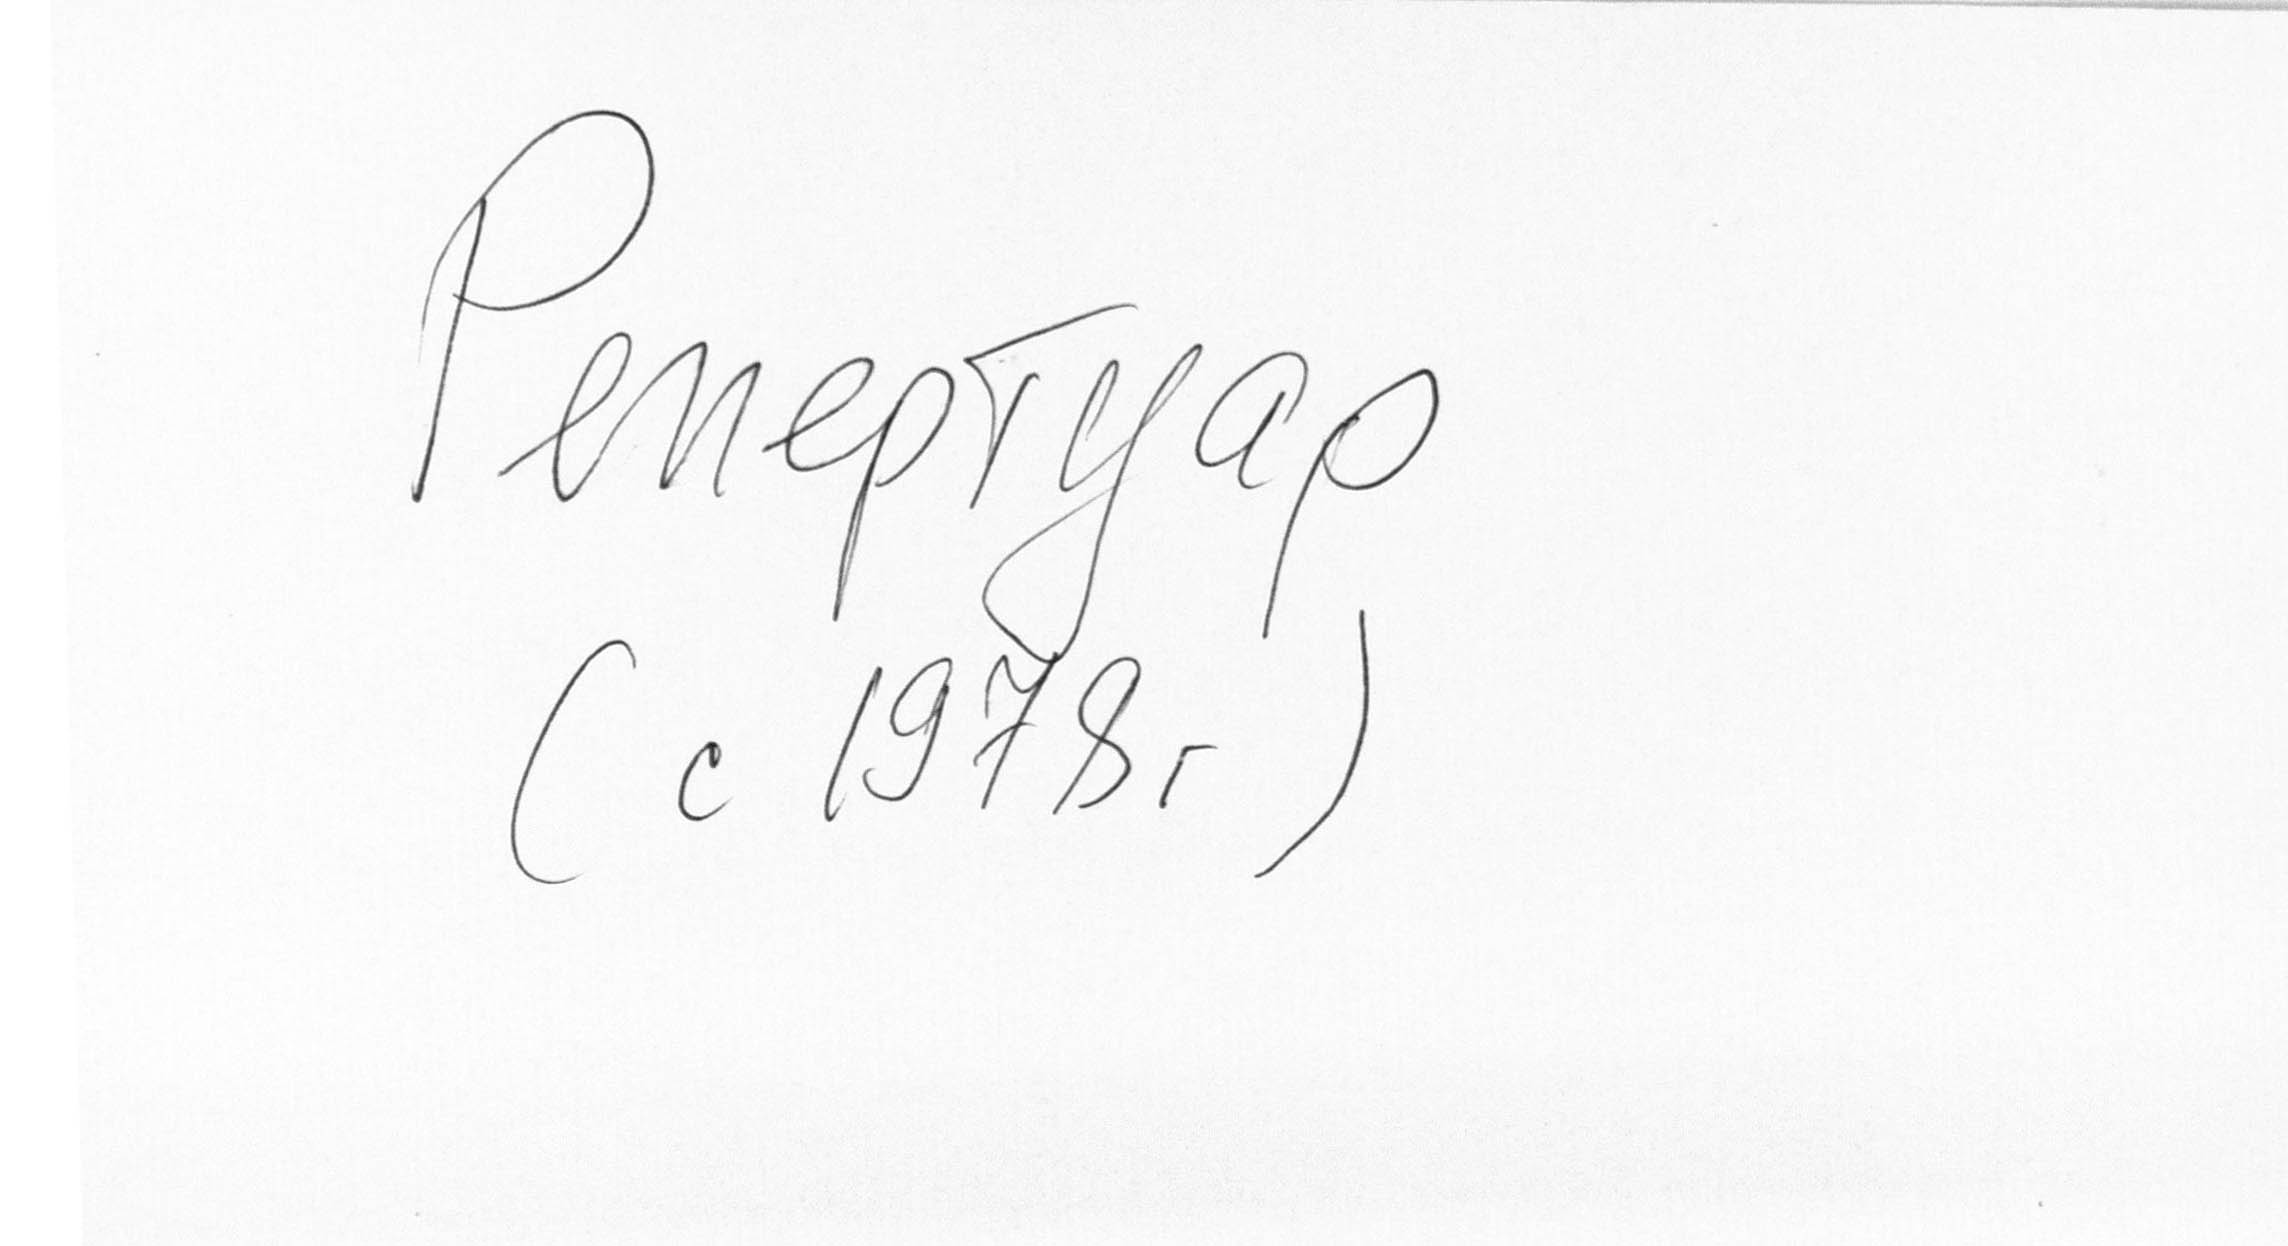 Репертуар
(с 1978г)